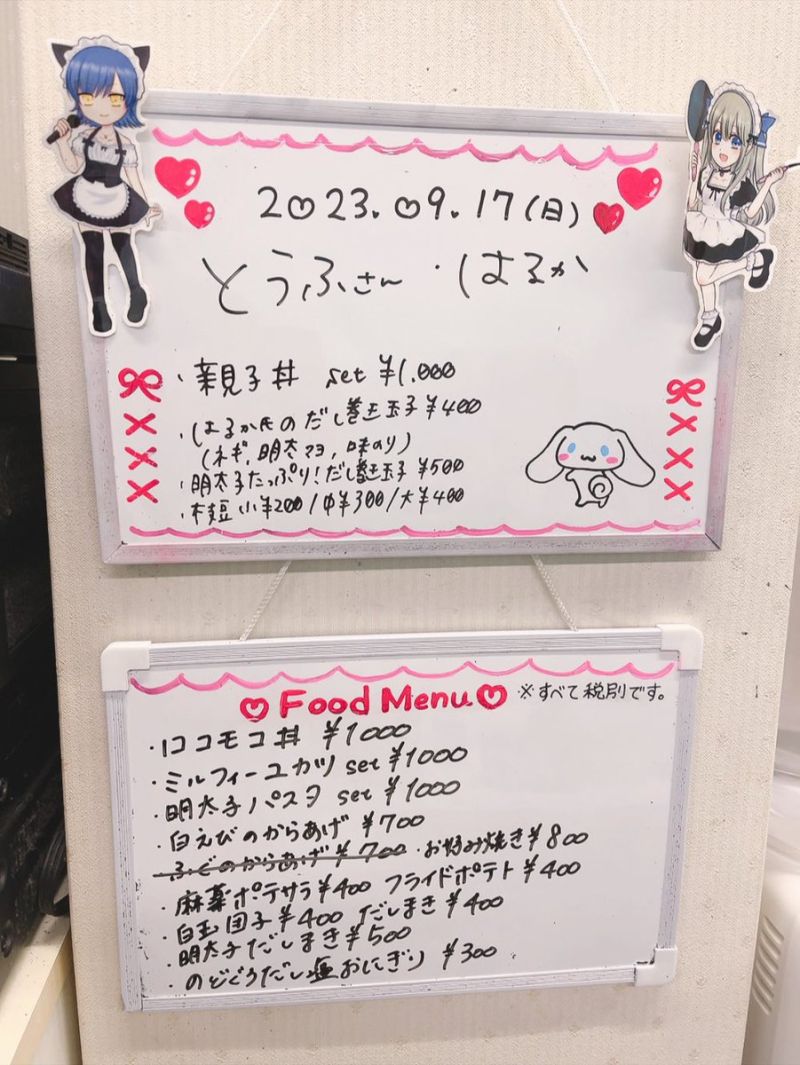 2023.09.17(日)
とうふさん・はるか
・親子丼 set ¥1.000
・はるか氏のだし巻玉子¥400
(ネギ,明太マヨ,味のり)
・明太子たっぷり!だし巻玉子¥500
・枝豆 小¥200/中¥300/大¥400
Food Menu ※すべて税別です。
・ロコモコ丼 ¥1000
・ミルフィーユカツ set ¥1000
・明太子パスタ set ¥1000
・白えびのからあげ ¥700
・ふぐのからあげ ¥700 ・お好み焼き¥800
・麻薬ポテサラ¥400 フライドポテト¥400
・白玉団子¥400 だしまき¥400
・明太子だしまき¥500
・のどぐろだし塩おにぎり ¥300